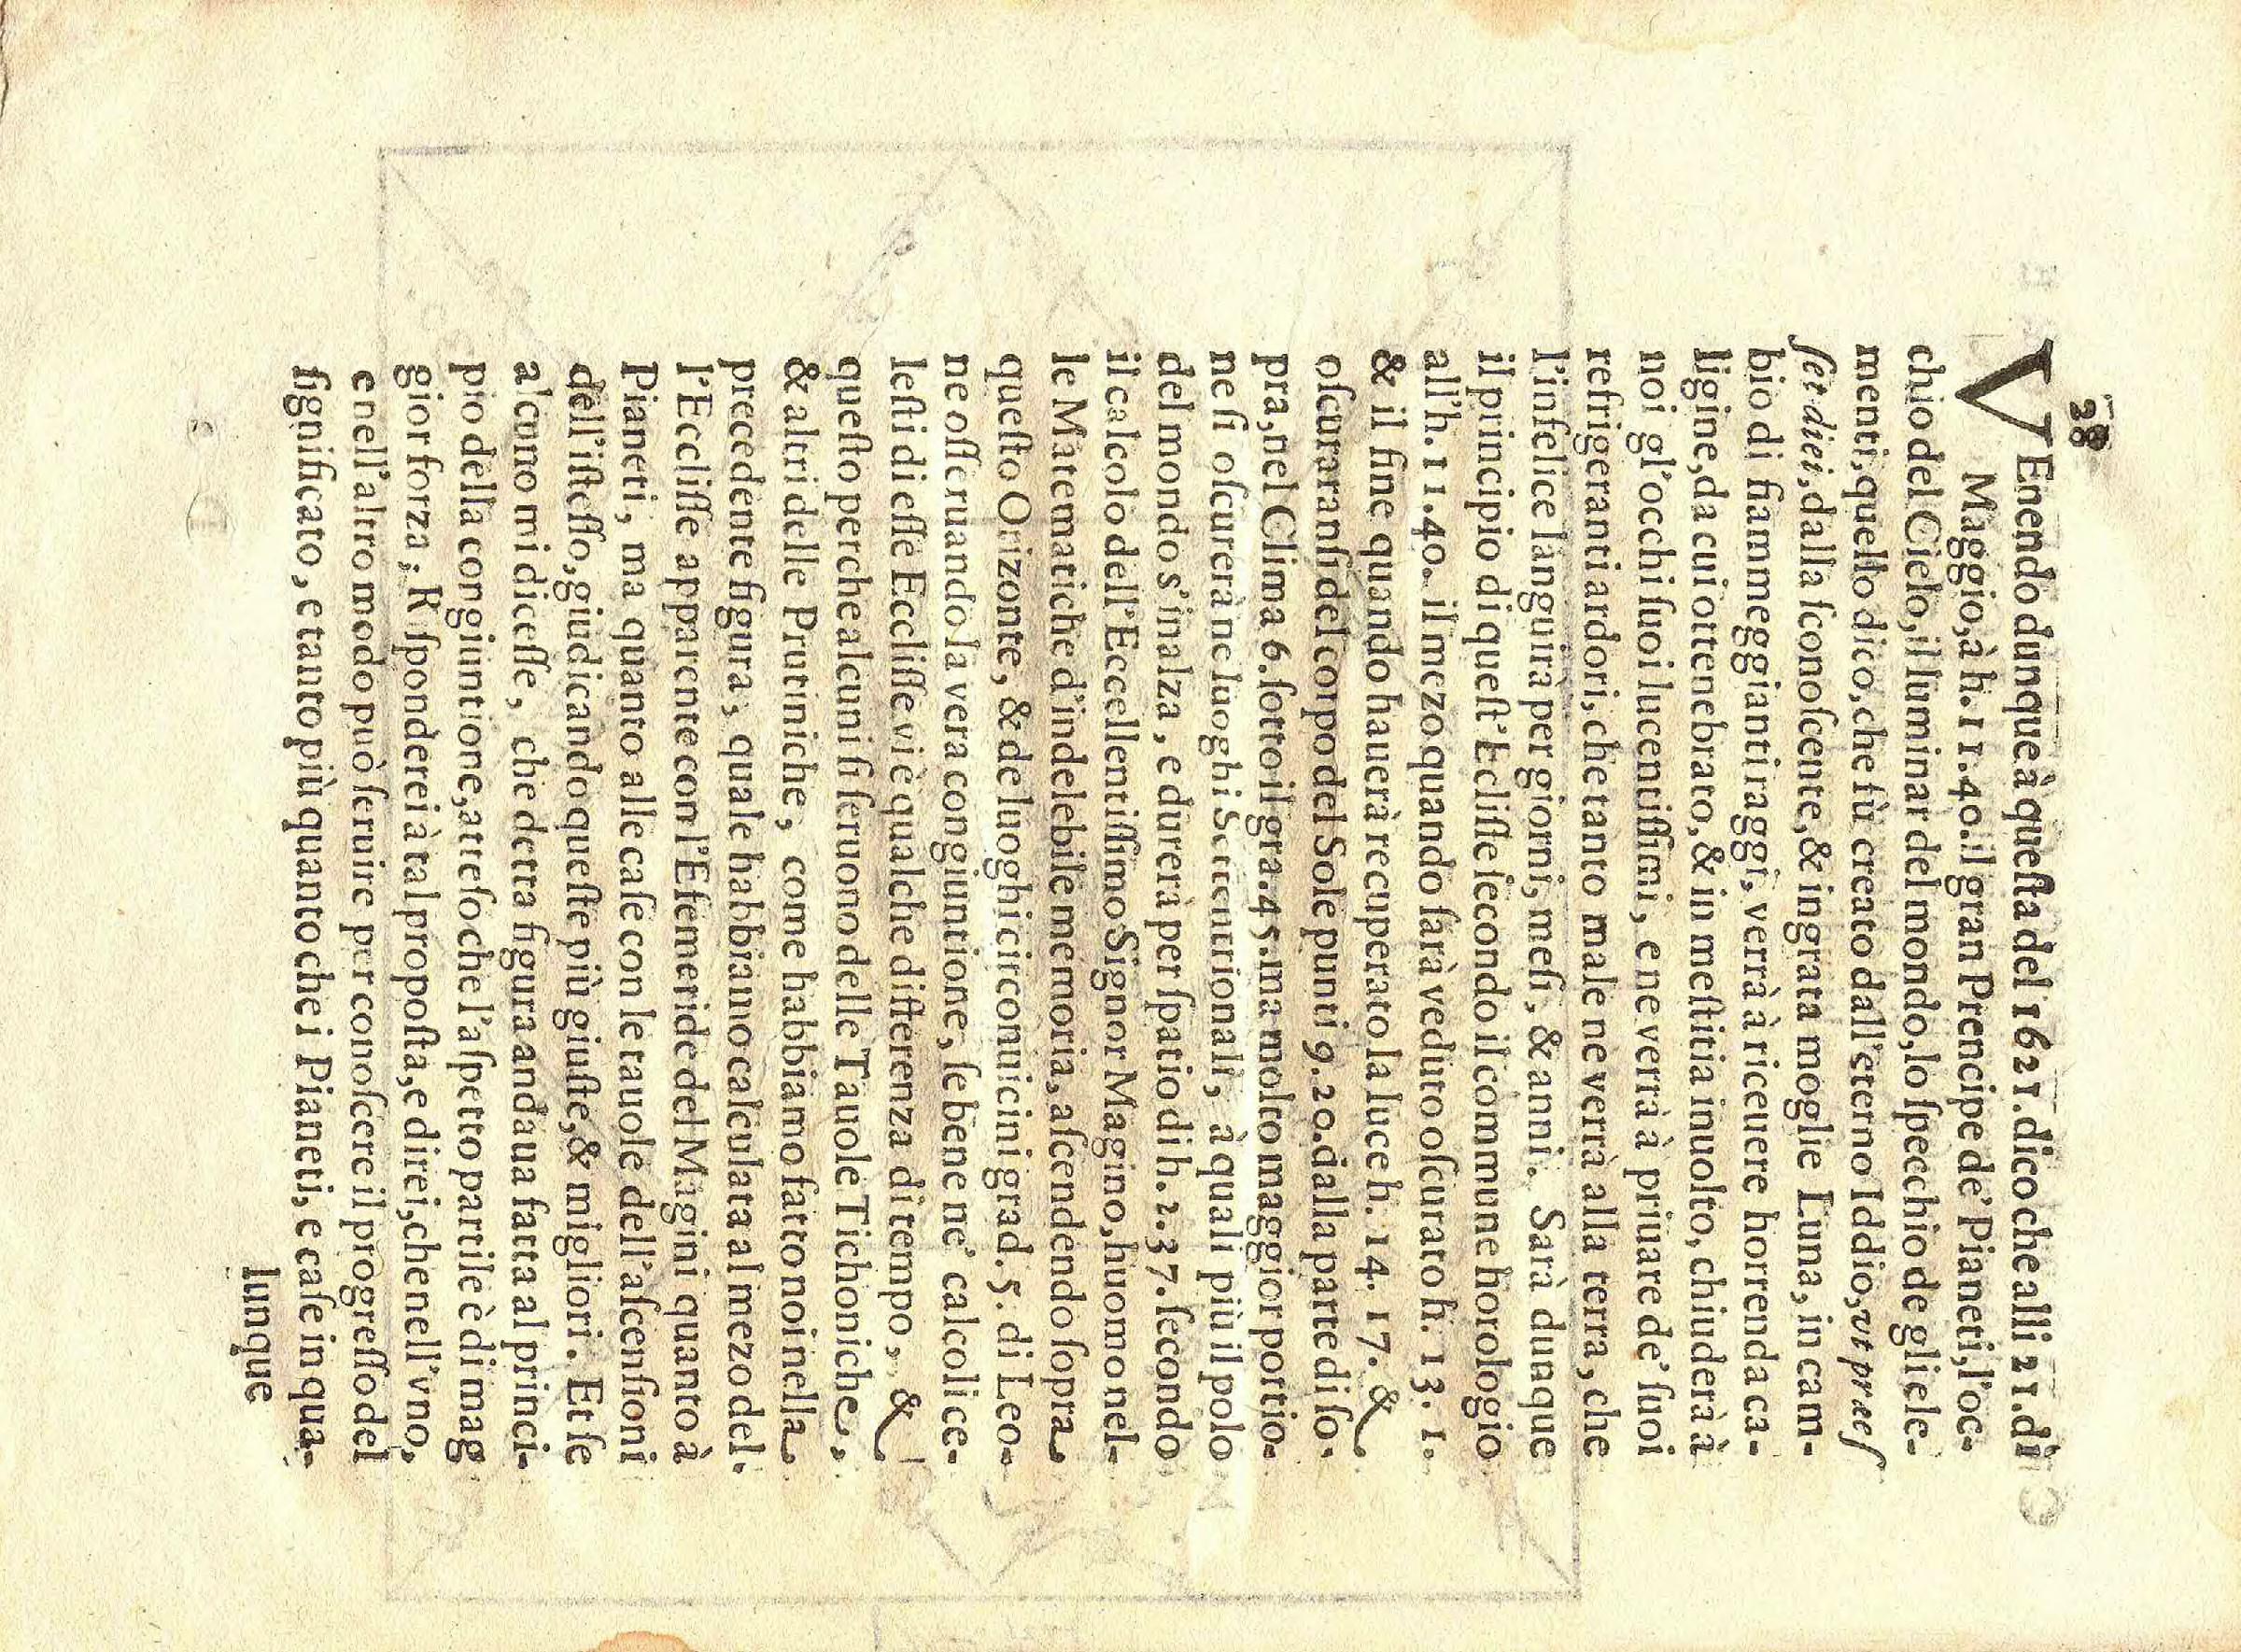 28
VEnendo dunque à queſta del 1621. dico che alli 21. dì
Maggio, à h. 11. 40. il gran Prencipe de' Pianeti, l'oc-
chio del Cielo, il luminar del mondo, lo ſpecchio de gli ele-
menti, quello dico, che fù creato dall'eterno Iddio, vt præſ
ſet diei, dalla ſconoſcente, & ingrata moglie Luna, in cam-
bio di fiammeggianti raggi, verrà à riceuere horrenda ca-
ligine, da cui ottenebrato, & in meſtitia inuolto, chiuderà à
noi gl'occhi ſuoi lucentiſſimi, e ne verrà à priuare de' ſuoi
refrigeranti ardori, che tanto male ne verrà alla terra, che
l'infelice languirà per giorni, meſi, & anni. Sarà dunque
il principio di queſt'Ecliſſe ſecondo il commune horologio
all'h. 11. 40. il mezo quando ſarà veduto oſcurato h. 13. 1.
& il fine quando hauerà recuperato la luce h. 14. 17. &
oſcuraranſi del corpo del Sole punti 9. 20. dalla parte di ſo-
pra, nel Clima 6. ſotto il gra. 45. ma molto maggior portio-
ne ſi oſcurerà ne luoghi Settentrionali, à quali più il polo
del mondo s'inalza, e durerà per ſpatio di h. 2. 37. ſecondo
il calcolo dell'Eccellentiſſimo Signor Magino, huomo nel-
le Matematiche d'indelebile memoria, aſcendendo ſopra
queſto Orizonte, & de luoghi circonuicini grad. 5. di Leo-
ne oſſeruando la vera congiuntione, ſe bene ne' calcoli ce-
leſti di eſſe Eccliſſe vi è qualche differenza di tempo, &
queſto perche alcuni ſi ſeruono delle Tauole Tichoniche,
& altri delle Pruteniche, come habbiamo fatto noi nella
precedente figura, quale habbiamo calculata al mezo del-
l'Eccliſſe apparente con l'Efemeride del Magini quanto à
Pianeti, ma quanto alle caſe con le tauole dell'aſcenſioni
dell'iſteſſo, giudicando queſte più giuſte, & migliori. Et ſe
alcuno mi diceſſe, che detta figura andaua fatta al princi-
pio della congiuntione, atteſo che l'aſpetto partile è di mag
gior forza; Riſponderei à tal propoſta, e direi, che nell'vno,
e nell'altro modo può ſeruire per conoſcere il progreſſo del
ſignificato, e tanto più quanto che i Pianeti, e caſe in qua-
lunque